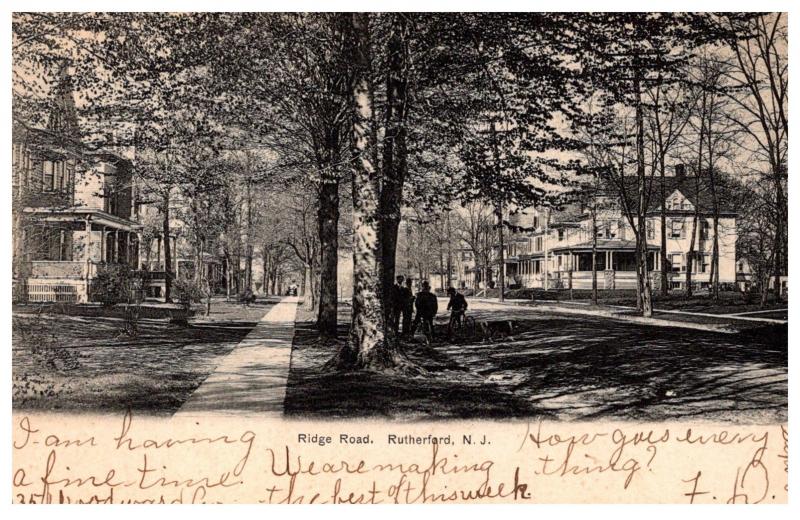 Ridge Road. Rutherford, N. J.
I am having
a fine time.
135 Woodward
We are making
the best of this week.
How goes every
thing?
F. D.